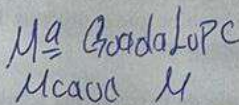 Mª GuadaLupe
Mcaud M